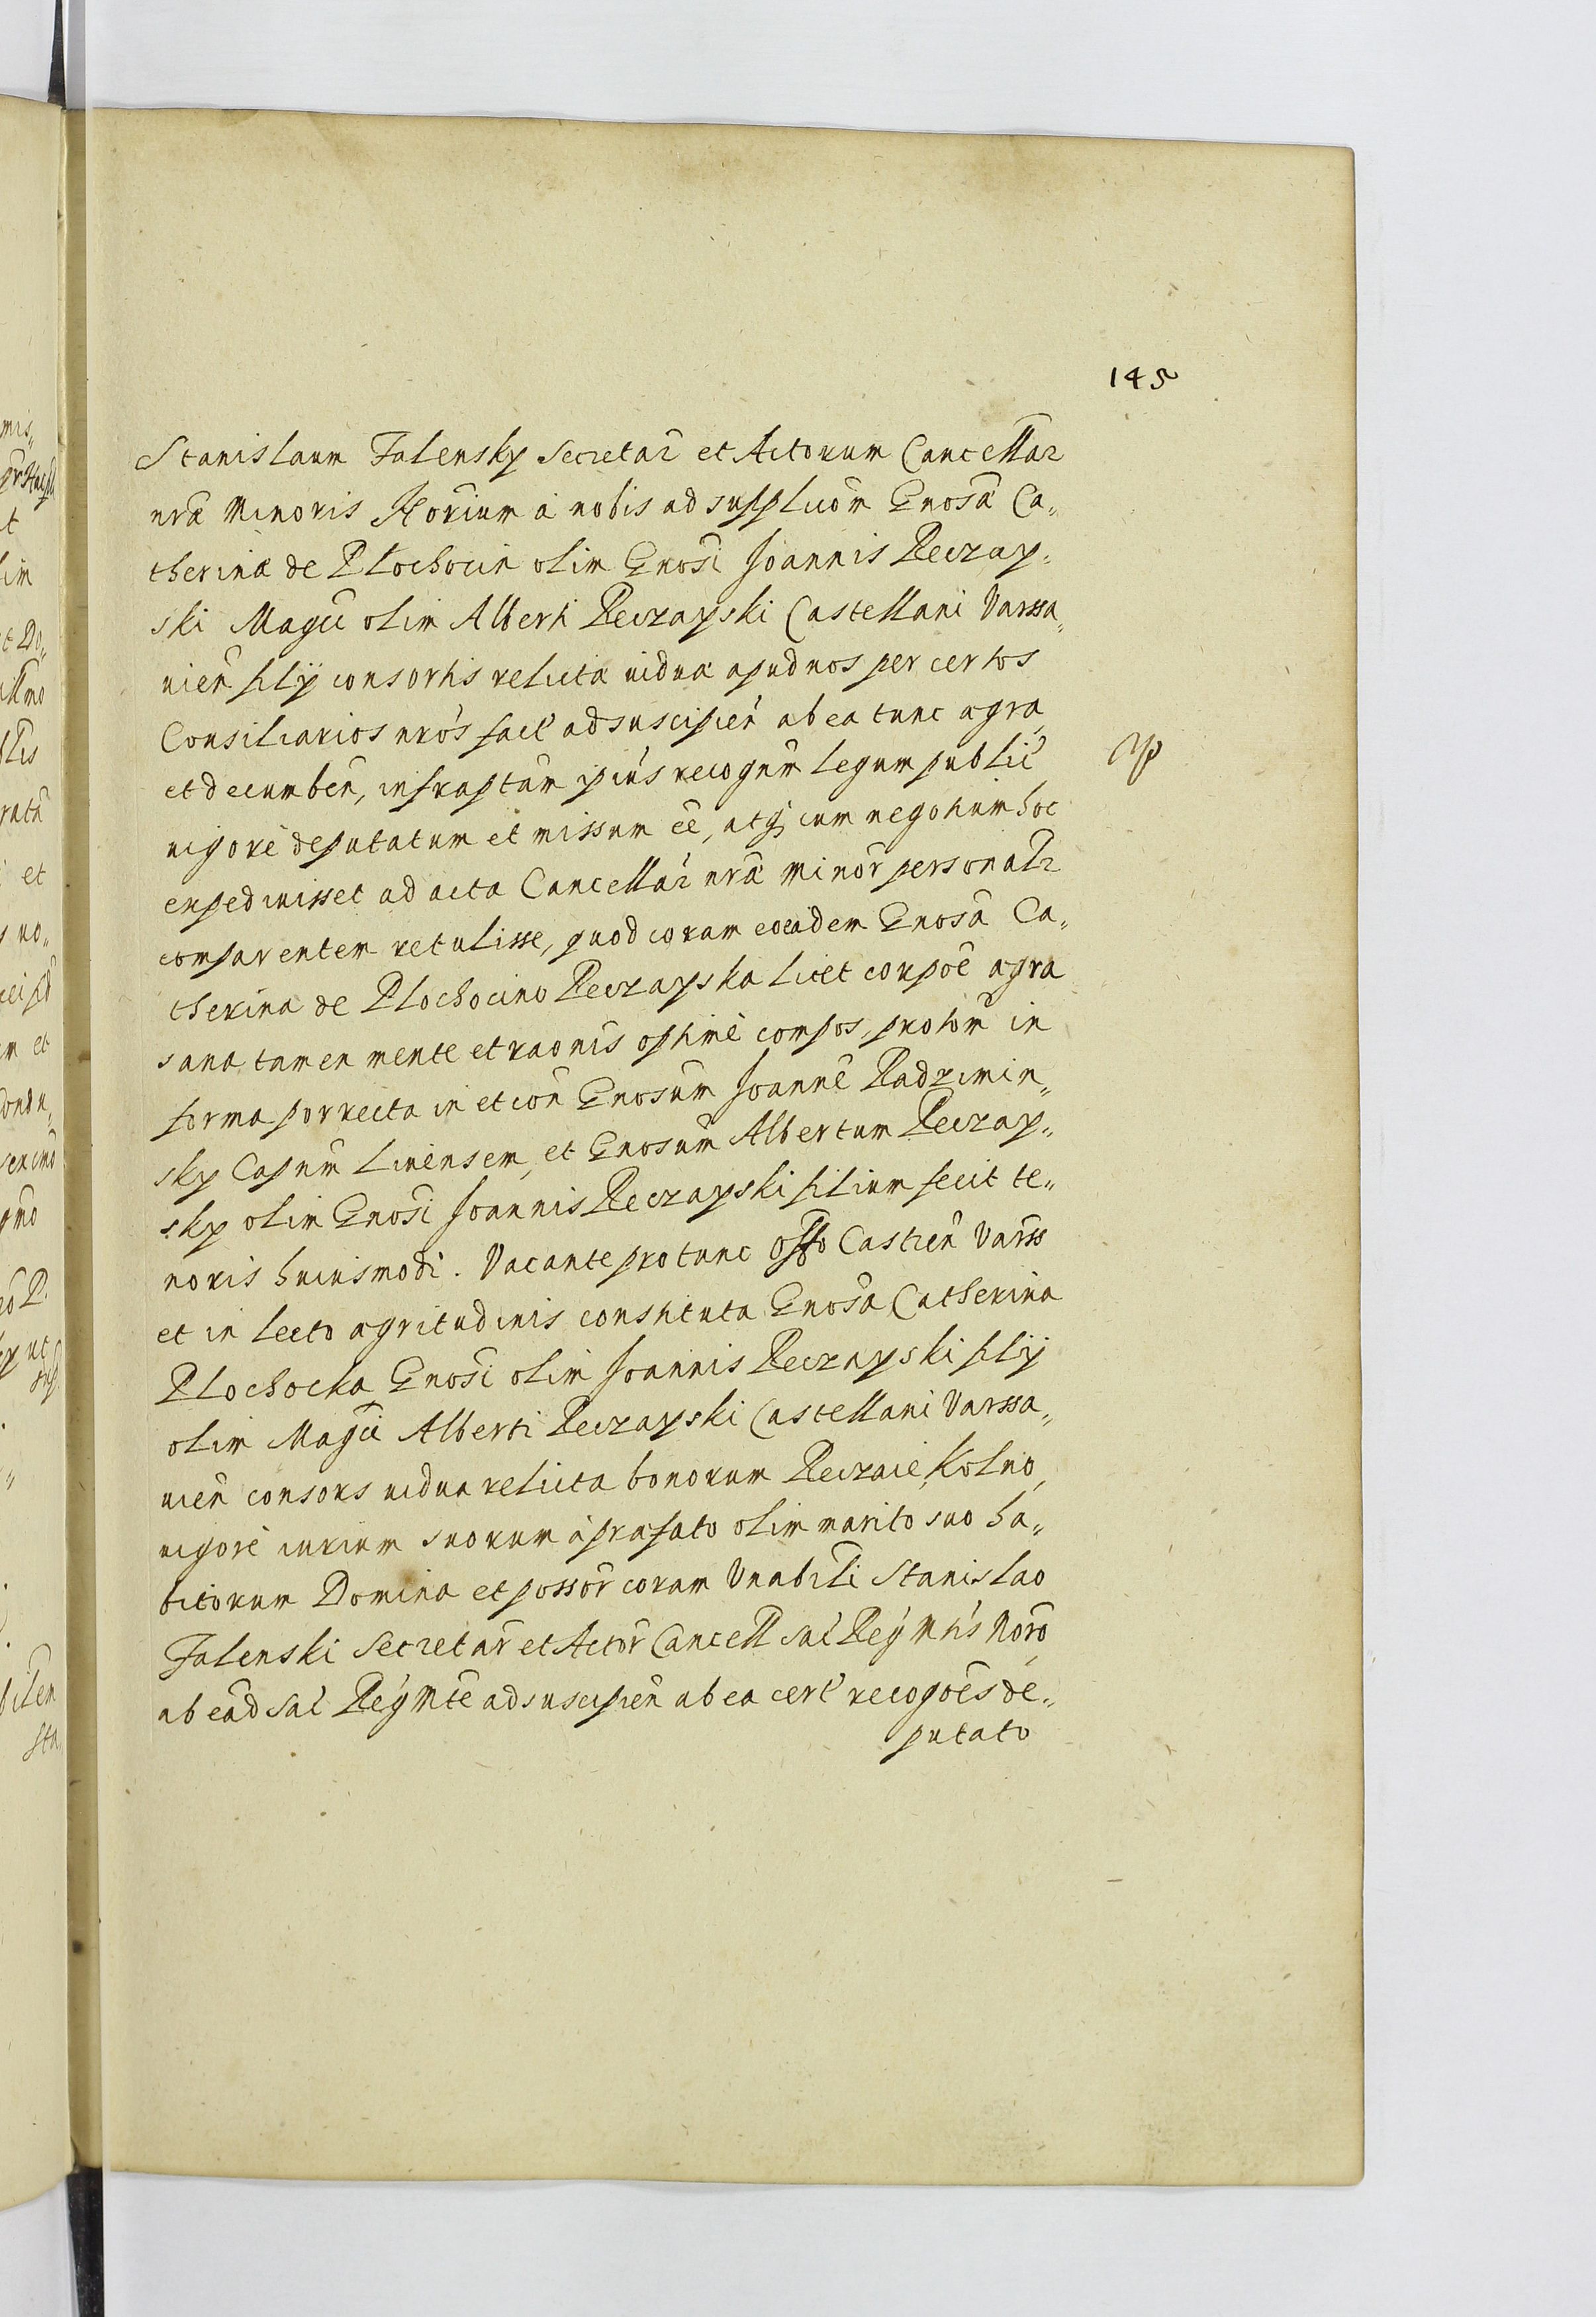 145
Stanislaum Falensky Secretar̃ et Actorum Cancellar̃
nrã Minoris Norium à nobis ad supplicõm Gnosã Ca„
therinæ de Plochocin olim Gnosi Joannis Reczay„
ski Magci olim Alberti Reczayski Castellani Varssa„
uieñ filij consortis relicta uidua apud nos per certos
Consiliarios nrós fact̃ ad suscipień ab ea tunc ægra
et decumbeñ, infraptãm ipius recognm̃ legum public̃
uigore deputatum et missum ẽe, atq cum negotium hoc
expediuisset ad acta Cancellar̃ nrã Minor̃ personalr̃
comparentem retulisse, quod coram eoeadem Gnosa Ca„
therina de Plochocino Reczayska licet corpoẽ ægra
sana tamen mente et raõnis optimè compos, protom̃ in
forma porrecta in et coñ Gnosum Joannẽ Radzimin„
sky Capnm̃ Liuensem, et Gnosum Albertum Reczay„
sky olim Gnosi Joannis Reczayski filium fecit te„
noris huiusmodi. Vacante pro tunc offo Castreñ Varss
et in lecto ægritudinis constituta Gnosa Catherina
Plochocka Gnosi olim Joannis Reczayski filij
olim Magci Alberti Reczayski Castellani Varssa„
uień consors uidua relicta bonorum Reczaie, Kolno
uigore iurium suorum à præfato olim marito suo ha„
bitorum Domina et possor̃ coram Vnabili Stanislao
Falenski Secretar̃ et Actor̃ Cancell Sac̃ Reg̃ Mtis Noro
ab ead Sac̃ Reg̃ Mte ad suscipień ab ea cert̃ recogoẽs de„
putato